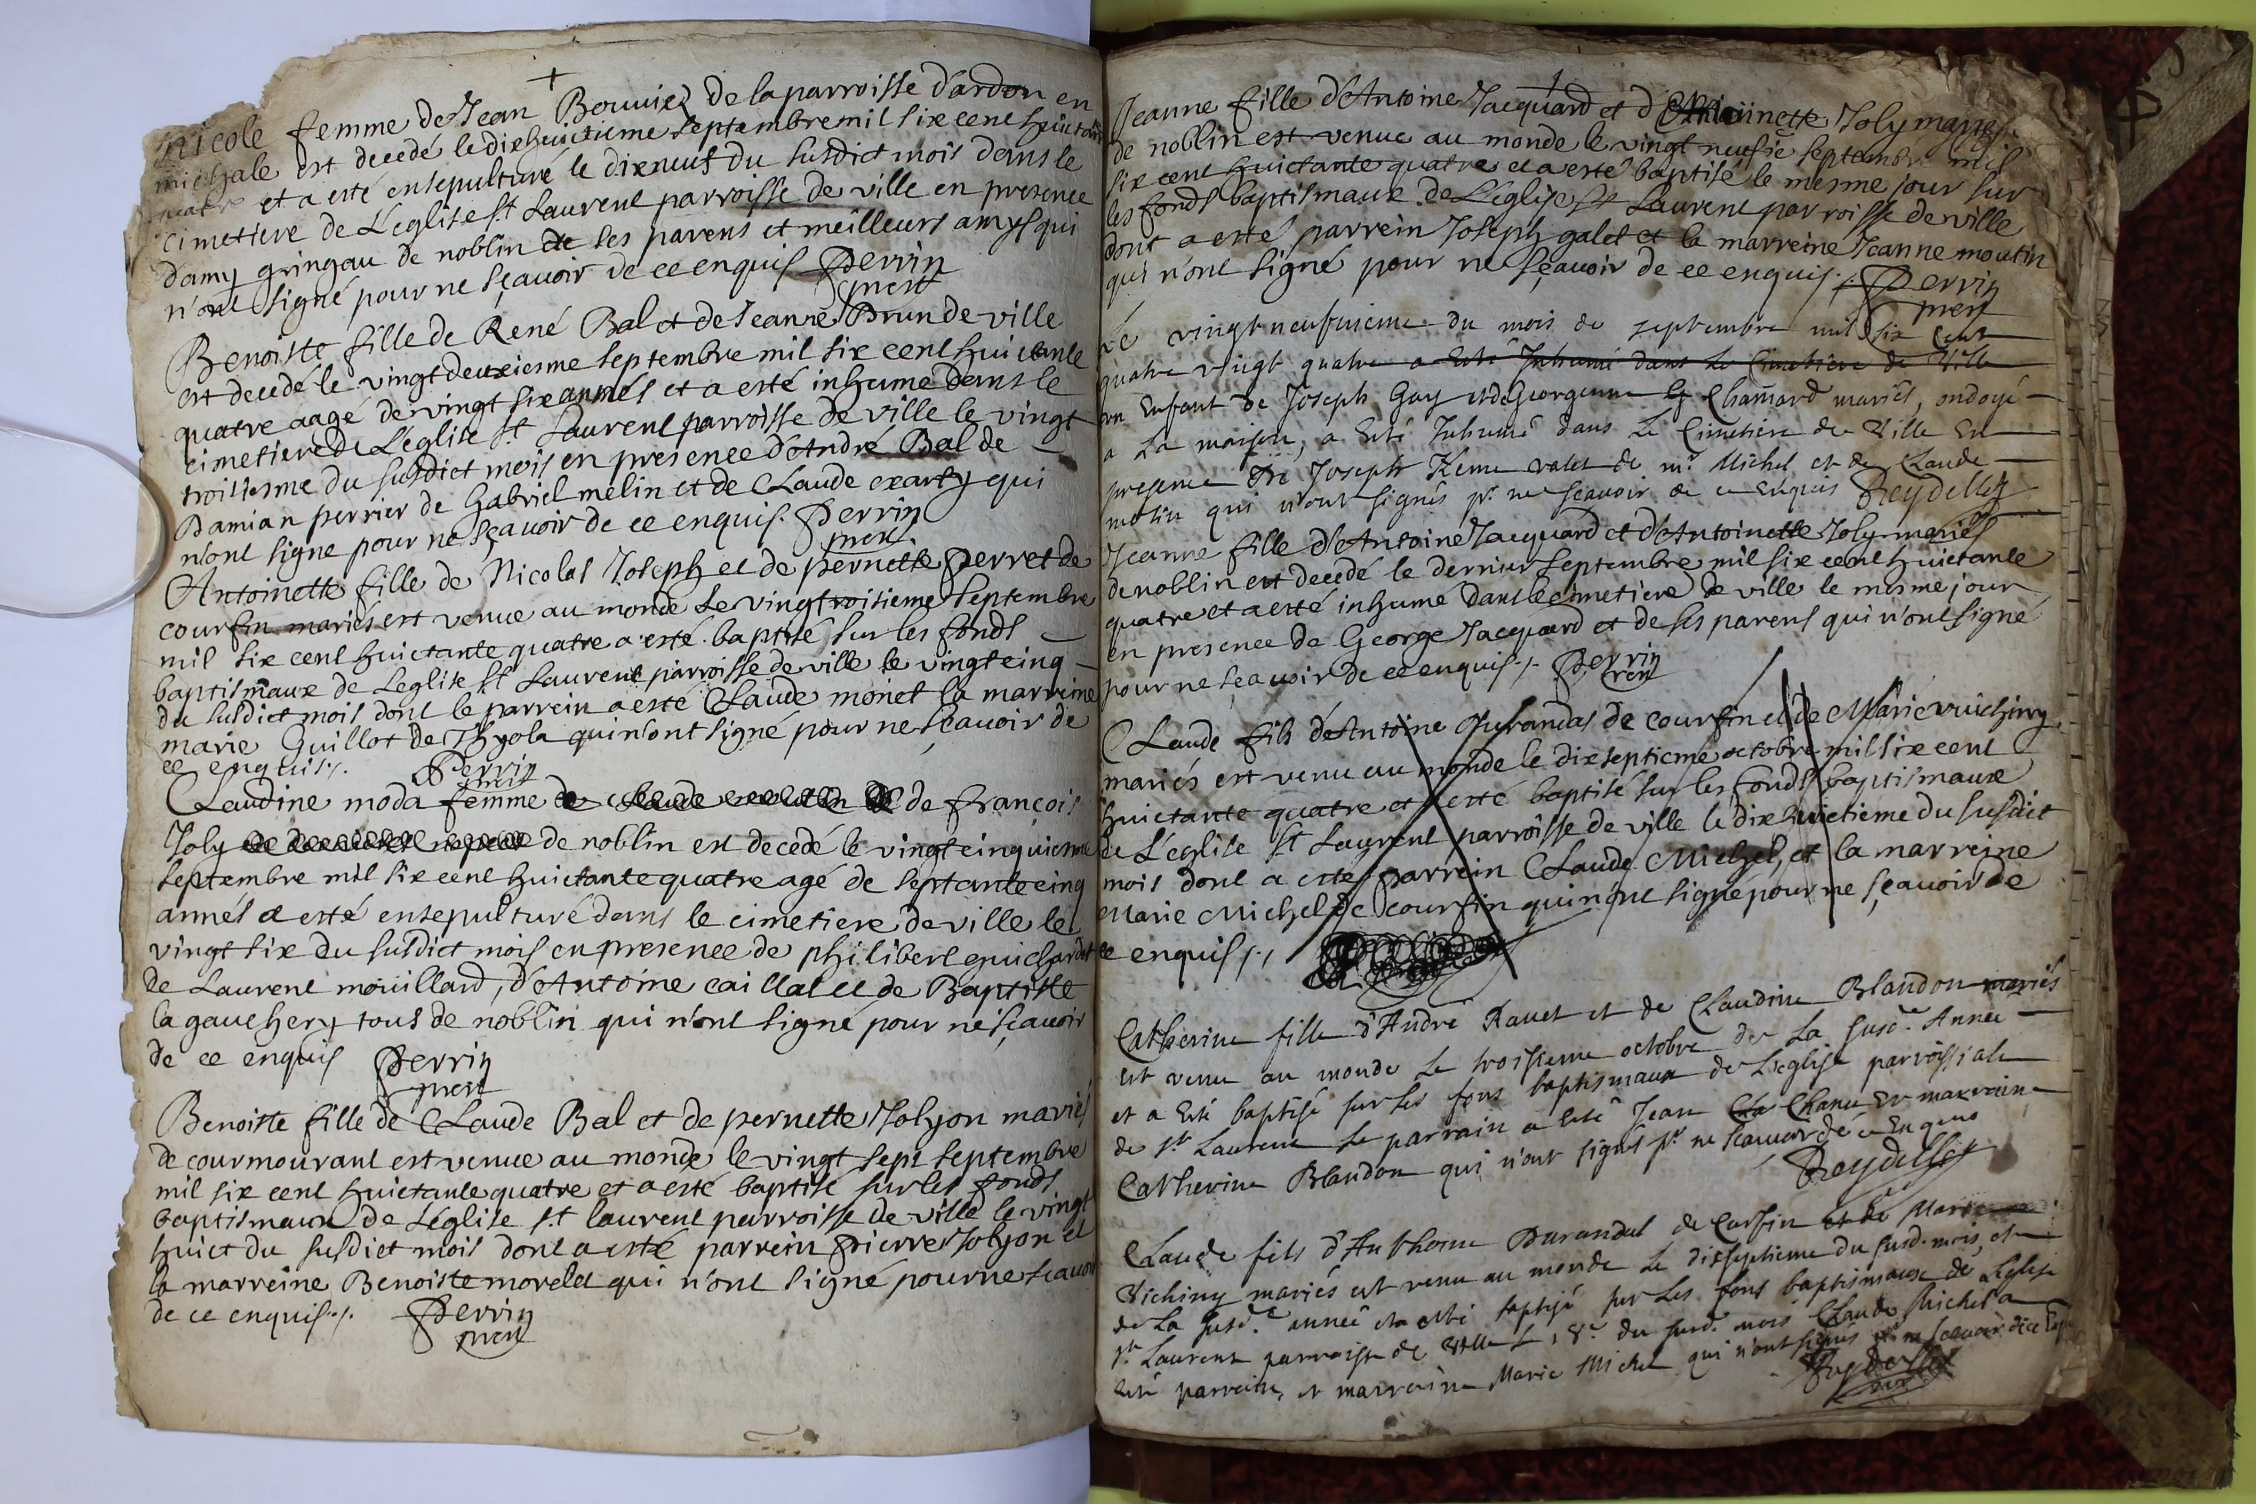 Nicole femme de Jean Bouvier de la parroisse d'ardon en
michale est decedé le dixhuictieme septembre mil six cent huictante
quatre et a esté ensepulturé le dixneuf du susdict mois dans le
cimetiere de L'eglise St Laurent parroisse de ville en presence
d'amy gringau de noblin de ses parens et meilleurs amys qui
n'ont signé pour ne sçavoir de ce enquis Perrin
Benoiste fille de René Bal et de Jeanne Brun de ville
est decedé le vingt deuxiesme septembre mil six cent huictante
quatre aagé de vingt six annés et a esté inhume dans le
cimetiere de L'eglise St Laurent parroisse de ville le vingt
troisiesme du susdict mois en presence d'André Bal de
Damian perrier de Gabriel melin et de Claude exarty qui
n'ont signe pour ne sçavoir de ce enquis. Perrin
Antoinette fille de Nicolas Joseph et de pernette Perret de
courfin mariés est venue au monde le vingtroisieme septembre
mil six cent huictante quatre a esté baptisé sur les fonds
baptismaux de Leglise St Laurent parroisse de ville le vingtcinq
du susdict mois dont le parrein a esté Claude monet la marreine
marie Guillot de Thyola qui n'ont signé pour ne sçavoir de
ce enquis ./. Perrin
Claudine moda femme de François
Joly de noblin est decedé le vingtcinquiesme
septembre mil six cent huictante quatre agé de septante cinq
annés a esté ensepulturé dans le cimetiere de ville le
vingt six du susdict mois en presence de philibert guichardet
de Laurent mouillard, d'Antoine caillat et de Baptiste
la gauchery tous de noblin qui n'ont signé pour ne sçavoir
de ce enquis Perrin
Benoiste fille de Claude Bal et de pernette Jolyon mariés
de courmourant est venue au monde le vingt sept septembre
mil six cent huictante quatre et a esté baptisé sur les fonds
baptismaux de L'eglise St laurent parroisse de ville le vingt
huict du susdict mois dont a esté parrein Pierre Jolyon et
la marreine Benoiste morelet qui n'ont signé pour ne sçavoir
de ce enquis ./. Perrin
Jeanne fille d'Antoine Jacquard et d'Antoinette Joly mariés
de noblin est venue au monde le vingt neufie septembre mil
six cent huictante quatre et a esté baptisé le mesme jour sur
les fonds baptismaux de L'eglise St Laurent parroisse de ville
dont a esté parrein Joseph galet et la marreine Jeanne moutin
qui n'ont signé pour ne sçavoir de ce enquis ./. Perrin
Le vingt neufvieme du mois de septembre mil six cent
quatre vingt quatre a esté Inhumé dans le Cimetiere de Ville
un Enfant de Joseph Gay et de Georgenne Chanard mariés, ondoyé
a La maison, a Esté Inhumé dans Le Cimetiere de Ville En
presence de Joseph valet de mr Michel et de Claude
molin qui n'ont signés pr ne sçavoir de ce Enquis Reydellet
Jeanne fille d'Antoine Jacquard et d'Antoinette Joly mariés
de noblin est decedé le dernier septembre mil six cent huictante
quatre et a esté inhumé dans le cimetiere de ville le mesme jour
en presence de George Jacquard et de ses parens qui n'ont signé
pour ne sçavoir de ce enquis ./. Perrin
Claude fils d'Antoine durandas de courfin et de Marie vuichiny
mariés est venu au monde le dixseptieme octobre mil six cent
huictante quatre et a esté baptisé sur les fonds baptismaux
de L'eglise St Laurent parroisse de ville le dixhuictieme du susdict
mois dont a esté parrein Claude Michel, et la marreine
Marie Michel de courfin qui n'ont signé pour ne sçavoir de
ce enquis ./.
Catherine fille d'André Ravet et de Claudine Blandon mariés
Est venue au monde Le troisieme octobre de La susd.e Année
et a Esté baptisé sur les fons baptismaux de L'eglise parroissiale
de St Laurent Le parrain a Esté Jean Chanu Et marraine
Catherine Blandon qui n'ont signés pr ne sçavoir de ce Enquis
Reydellet
Claude fils d'Anthoine Durandal de Corfin et de Marie
Vichiny mariés est venu au monde Le dixseptieme du susd. mois, et
de La susd.e année et a esté baptisé sur Les fons baptismaux de L'eglise
St Laurent parroisse de Ville Le 18.e du susd. mois Claude Michel a
Esté parrain, et marraine Marie Michel qui n'ont signés pr ne sçavoir de ce Enquis
Reydellet